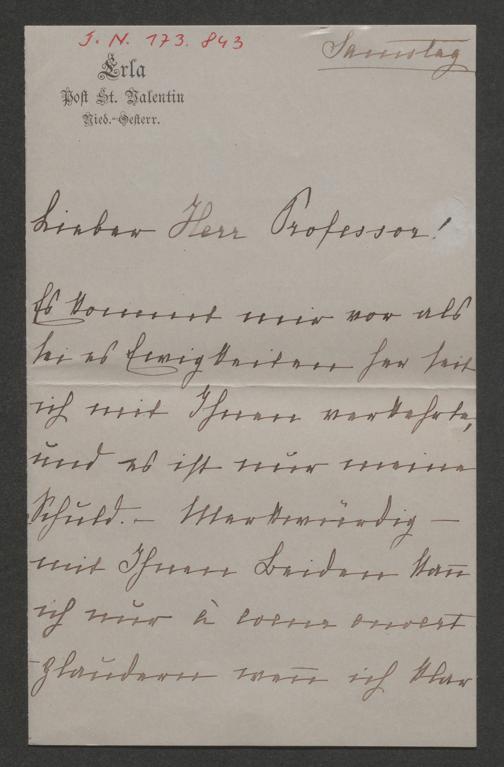 J. N. 173.843
Samstag
Erla
Post St. Valentin
Nied.-Oesterr.
Lieber Herr Professor!
Es kommt mir vor als
sei es Ewigkeiten her seit
ich mit Ihnen verkehrte,
und es ist nur meine
Schuld. – Merkwürdig –
mit Ihnen Beiden kan̄
ich nur à coeur ouvert
plaudern wen̄ ich klar